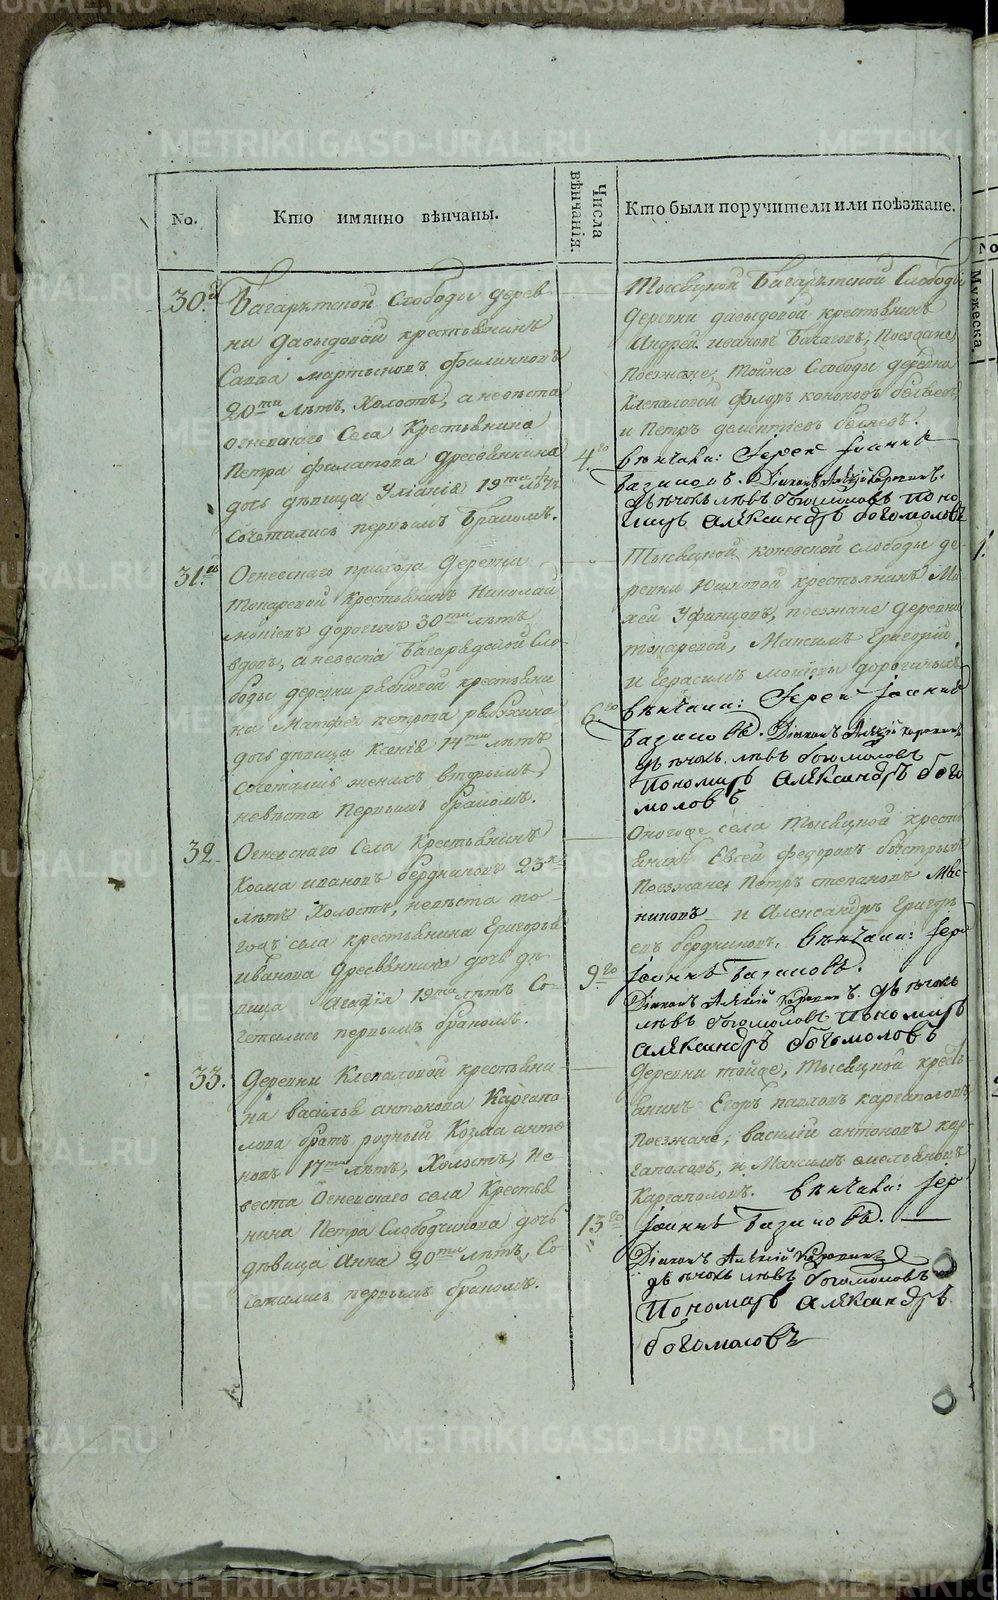 No.
Кто имянно вѣнчаны.
Числа вѣнчанія.
Кто были поручители или поѣзжане.
30.й
Багарятской Слободы дерев
ни Давыдовой крестьянинъ
Савва мартыновъ Филинковъ
20ти лѣтъ, Холостъ, а невѣста
огневскаго Села Крестьянина
Петра филатова Дресвянкина
дочь дѣвица Уліанія 19ти лѣтъ
Сочетались первымъ бракомъ.
4го
Тысяцкой Багарятской Слободы
деревни давыдовой крестьянинъ
Андрей иванов
Поезжане, тойже Слободы деревни
Клепаловой Флоръ
и Петръ дементіевъ
вѣнчали: Іерей Іоаннъ
Базиловъ. Діаконъ Алексій
дьячокъ левъ богомоловъ поно
марь Александръ богомоловъ
31.й
Огневскаго прихода деревни
Токаревой Крестьянинъ Николай
моисіевъ дорогинъ 30ти лѣтъ
вдовъ, а невеста Багаряцкой Сло-
боды деревни рябковой крестьяни
на Матфея петрова рябухина
дочь дѣвица Ксенія 19ти лѣтъ
сочетались женихъ вторымъ,
невѣста Первымъ бракомъ.
6го
Тысяцкой коневской слободы де-
ревни Юшковой крестьянинъ Ми
хей Уфинцовъ, поезжане деревни
токаревой, Максимъ Григорій
и Герасимъ моисіевы дорогины
вѣнчали: Іерей Іоаннъ
Базиловъ. Діаконъ Алексій
дьячокъ левъ богомоловъ
Пономарь Александръ бого
моловъ
32.
Огневскаго Села Крестьянинъ
Козма ивановъ бердниковъ 23х
лѣтъ Холостъ, невѣста то-
гожъ села крестьянина Григорья
иванова Дресвянкина дочь дѣ
вица 19ти лѣтъ Со-
четались первымъ бракомъ.
9го
Оногоже села Тысяцкой кресть
янинъ Евсей Федоровъ быстрыхъ
Поезжане Петръ степановъ Мяс-
никовъ и Александръ Григорь
евъ бердниковъ. Вѣнчали: Іерей
Іоаннъ Базиловъ.
Діаконъ Алексій дьячокъ
левъ богомоловъ Пономарь
Александръ богомоловъ
33.
Деревни Клепаловой крестьяни-
на василья антонова Каргапо
лова братъ родный Козма анто
новъ 17ти лѣтъ, Холостъ, Не
веста Огневскаго села Крестья
нина Петра Слободчикова дочь
дѣвица Анна 20ти лѣтъ, Со
четались первымъ бракомъ.
13го
деревни тойже, Тысяцкой кресть
янинъ Егоръ павловъ каргаполовъ
Поезжане, василій антоновъ кар-
гаполовъ, и Максимъ емельяновъ
Каргаполовъ. вѣнчали: Іерей
Іоаннъ Базиловъ.
Діаконъ Алексій
дьячокъ левъ богомоловъ
Пономарь Александръ
богомоловъ
Мужеска.
METRIKI.GASO-URAL.RU